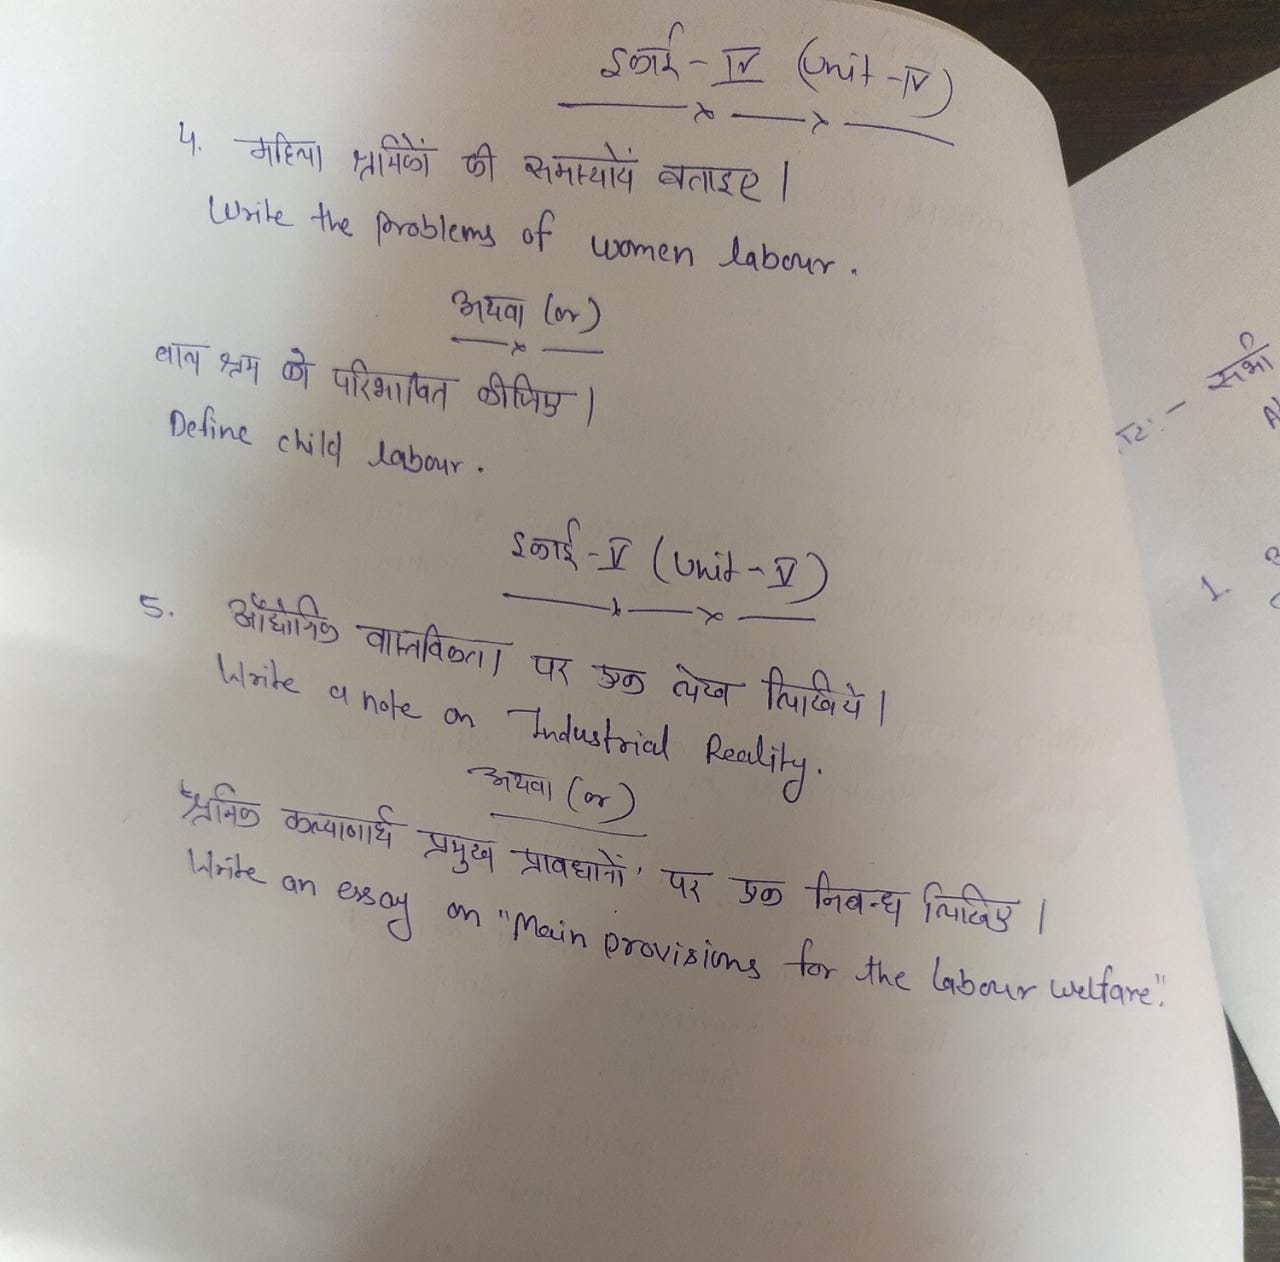 इकाई - IV (Unit - IV)
4. महिला श्रमिकों की समास्योयें बताइए।
Write the problems of women labour.
अथवा (or)
बाल श्रम को परिभाषित कीजिए।
Define child labour.
इकाई - V (Unit - V)
5. औद्योगिक वास्तविकता पर एक लेख लिखिये।
Write a note on Industrial Reality.
अथवा (or)
श्रमिक कल्याणार्थ प्रमुख प्रावधानों' पर एक निबन्ध लिखिए।
Write an essay on "Main provisions for the labour welfare".
सभी
1.